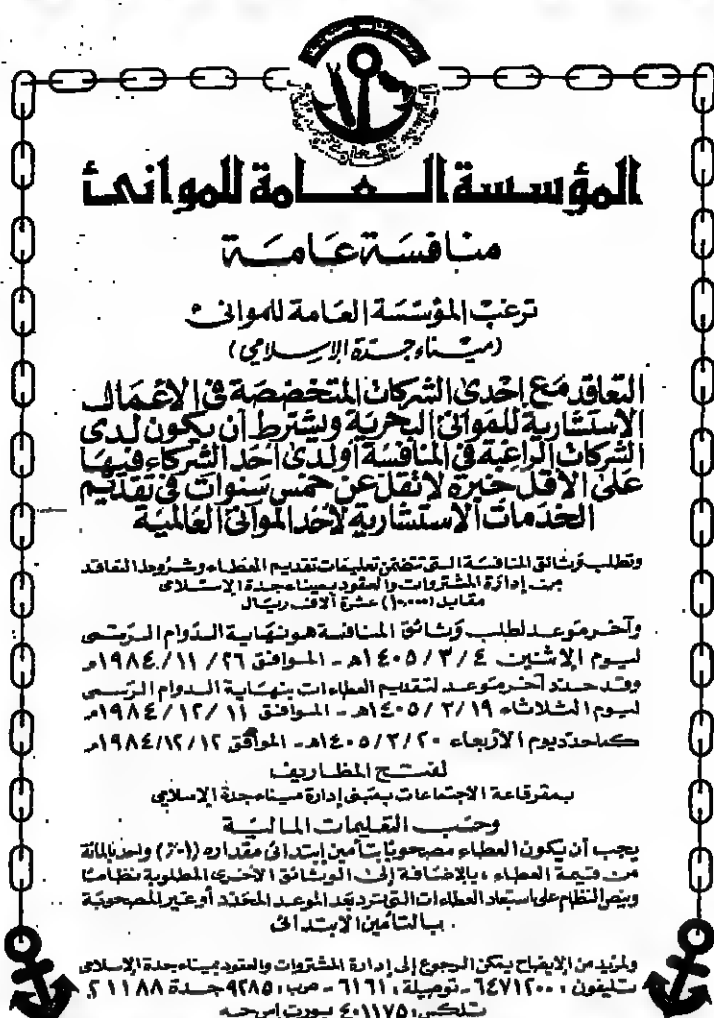 المؤسسة العامة للموانئ
منافسة عامة
ترغب المؤسسة العامة للموانئ
(ميناء جدة الإسلامي)
التعاقد مع إحدى الشركات المتخصصة في الأعمال
الاستشارية للموانئ البحرية ويشترط أن يكون لدى
الشركات الراغبة في المنافسة أو لدى أحد الشركاء فيها
على الأقل خبرة لا تقل عن خمس سنوات في تقديم
الخدمات الاستشارية لأحد الموانئ العالمية
وتطلب وثائق المنافسة التي تتضمن تعليمات تقديم العطاء وشروط التعاقد
من إدارة المشتروات والعقود بميناء جدة الإسلامي
مقابل (١٠,٠٠٠) عشرة آلاف ريال
وآخر موعد لطلب وثائق المنافسة هو نهاية الدوام الرسمي
ليوم الإثنين ٤ / ٣ / ١٤٠٥هـ - الموافق ٢٦ / ١١ / ١٩٨٤م
وقد حدد آخر موعد لتقديم العطاءات بنهاية الدوام الرسمي
ليوم الثلاثاء ١٩ / ٣ / ١٤٠٥هـ - الموافق ١١ / ١٢ / ١٩٨٤م
كما حدد يوم الأربعاء ٢٠ / ٣ / ١٤٠٥هـ - الموافق ١٢ / ١٢ / ١٩٨٤م
لفتح المظاريف
بمقر قاعة الاجتماعات بمبنى إدارة ميناء جدة الإسلامي
وحسب التعليمات المالية
يجب أن يكون العطاء مصحوبا بتأمين إبتدائي مقداره (١٪) واحد بالمائة
من قيمة العطاء ، بالإضافة إلى الوثائق الأخرى المطلوبة نظاما
وينص النظام على استبعاد العطاءات التي ترد بعد الموعد المحدد أو غير المصحوبة
بالتأمين الابتدائي .
ولمزيد من الإيضاح يمكن الرجوع إلى إدارة المشتروات والعقود بميناء جدة الإسلامي
تليفون : ٦٤٧١٢٠٠ - توصيلة : ٦١٦١ - ص.ب : ٩٢٨٥ جدة ٢١١٨٨
تلكس : ٤٠١١٧٥ بورت اس جه